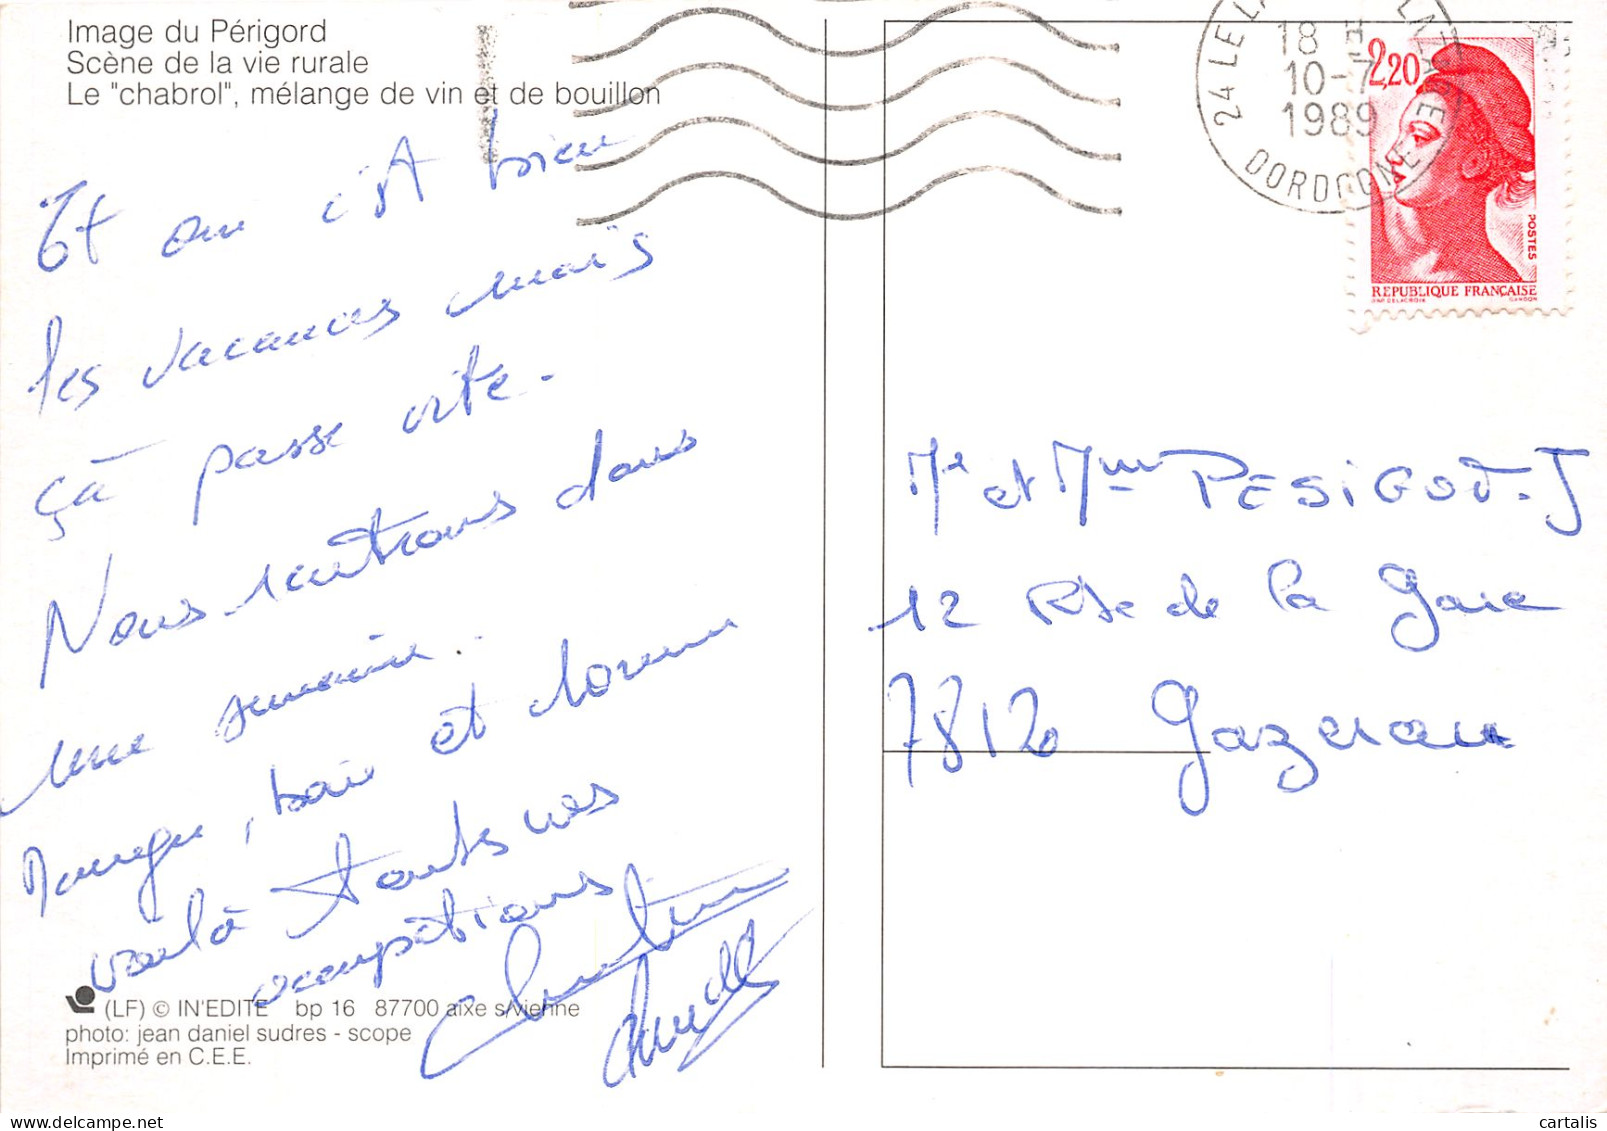 Image du Périgord
Scène de la vie rurale
Le "chabrol", mélange de vin et de bouillon
Et on est bien
les vacances mais
çà passe vite.
Nous rentrons dans
une semaine..
Manger, boire et dormir
voilà toutes nos
occupations.
Christian
(LF) © IN'EDITE bp 16 87700 aixe s/vienne
photo: jean daniel sudres - scope
Imprimé en C.E.E.
24 LE LA
18 H
10-7
1989
DORDOGNE
2,20
POSTES
REPUBLIQUE FRANÇAISE
Mr et Mme PESIGOT. J
12 Rte de la Gare
78120 Gazeran
cartalis